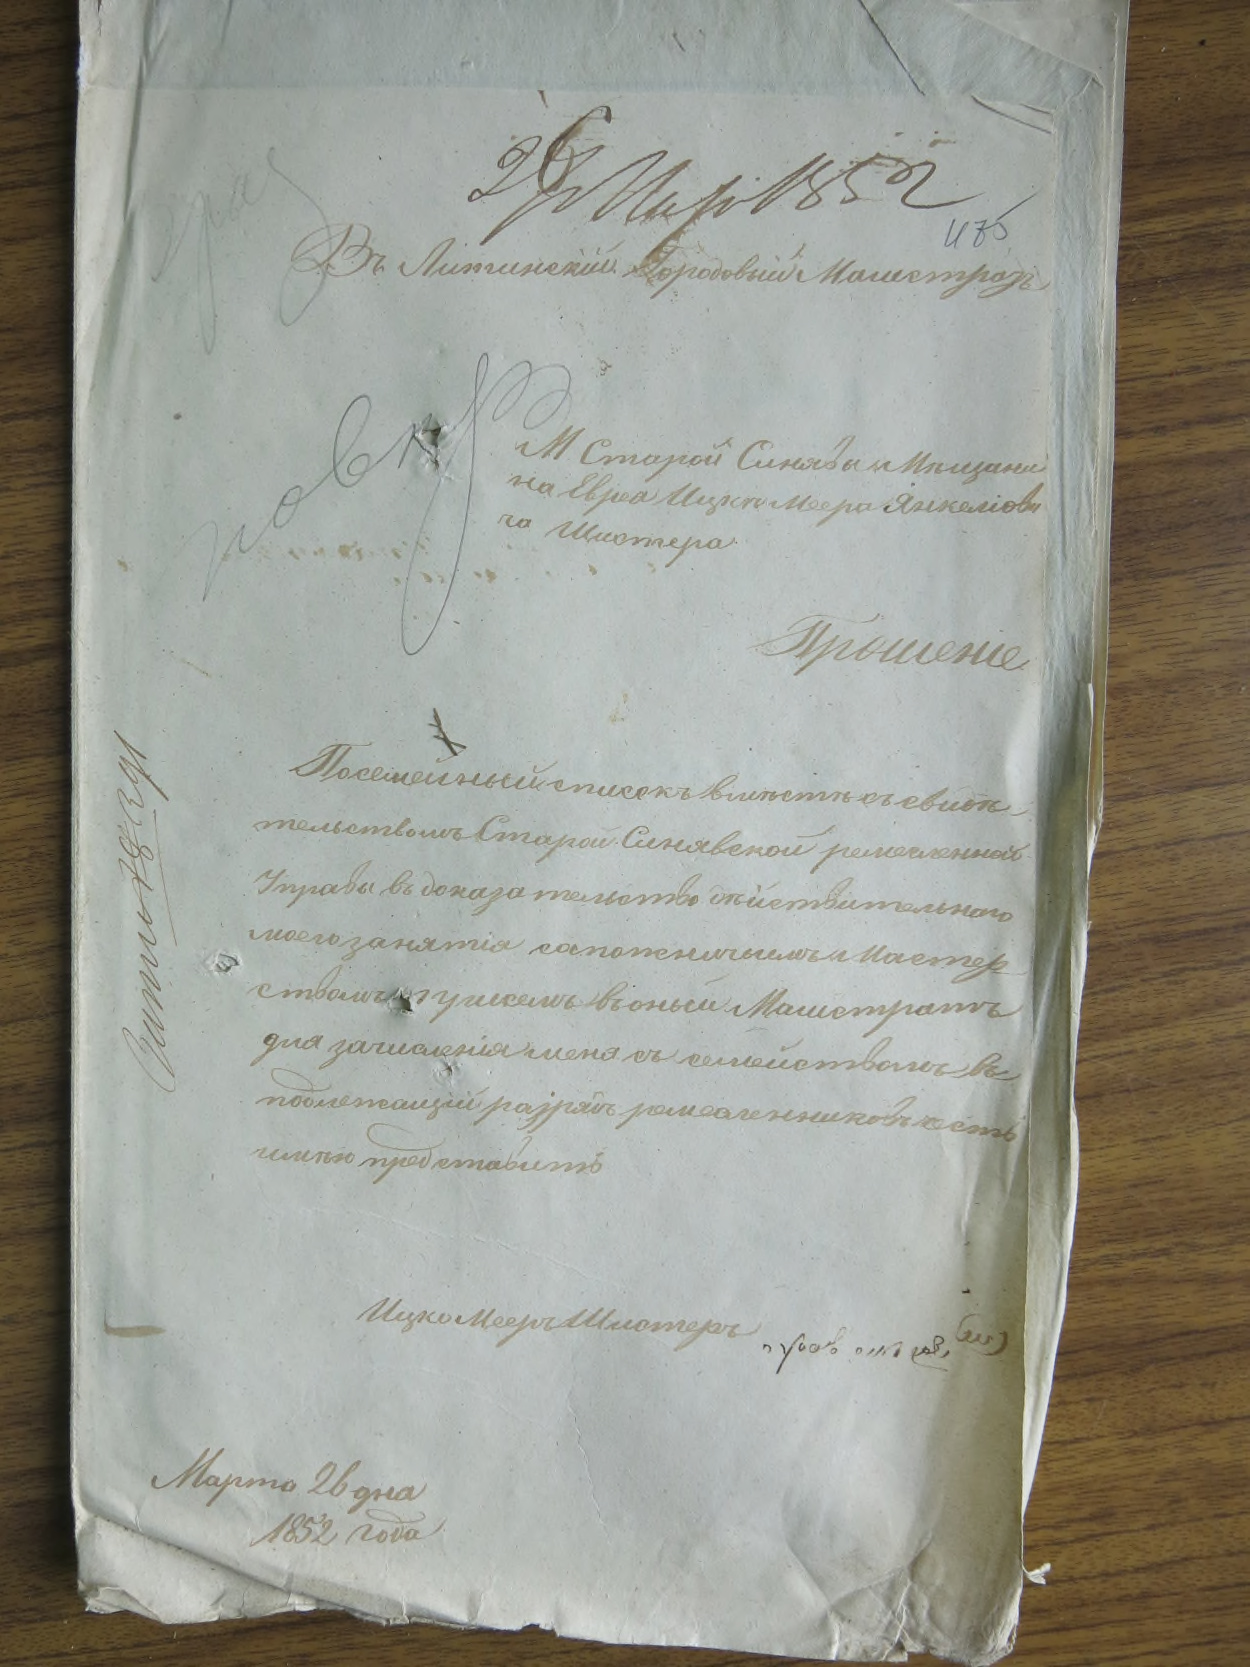 26 Мар 1852
475
Въ Литинскій Городовый Магистратъ
М Старой Синявы Мѣщани
на Еврея Ицка Меера Янкеліови
ча Шистера
Прошеніе
Посемейный списокъ вмѣстѣ съ свидѣ
тельствомъ Старой Синявской ремесленной
Управы въ доказательство дѣйствительнаго
моего занятія сапожничымъ Мастер
ствомъ при семъ въ оный Магистратъ
для зачисленія меня съ семействомъ въ
подлежащій разрядъ ремесленниковъ честь
имѣю представить
Ицко Мееръ Шистеръ
Марта 26 дна
1852 года